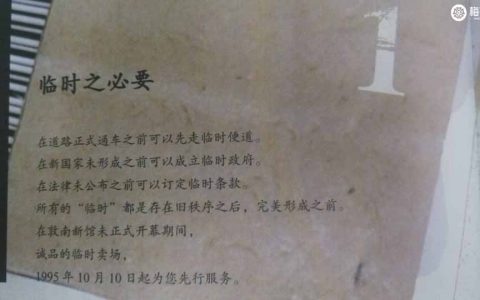 1
临时之必要
在道路正式通车之前可以先走临时便道。
在新国家未形成之前可以成立临时政府。
在法律未公布之前可以订定临时条款。
所有的“临时”都是存在旧秩序之后，完美形成之前。
在敦南新馆未正式开幕期间，
诚品的临时卖场，
1995年10月10日起为您先行服务。